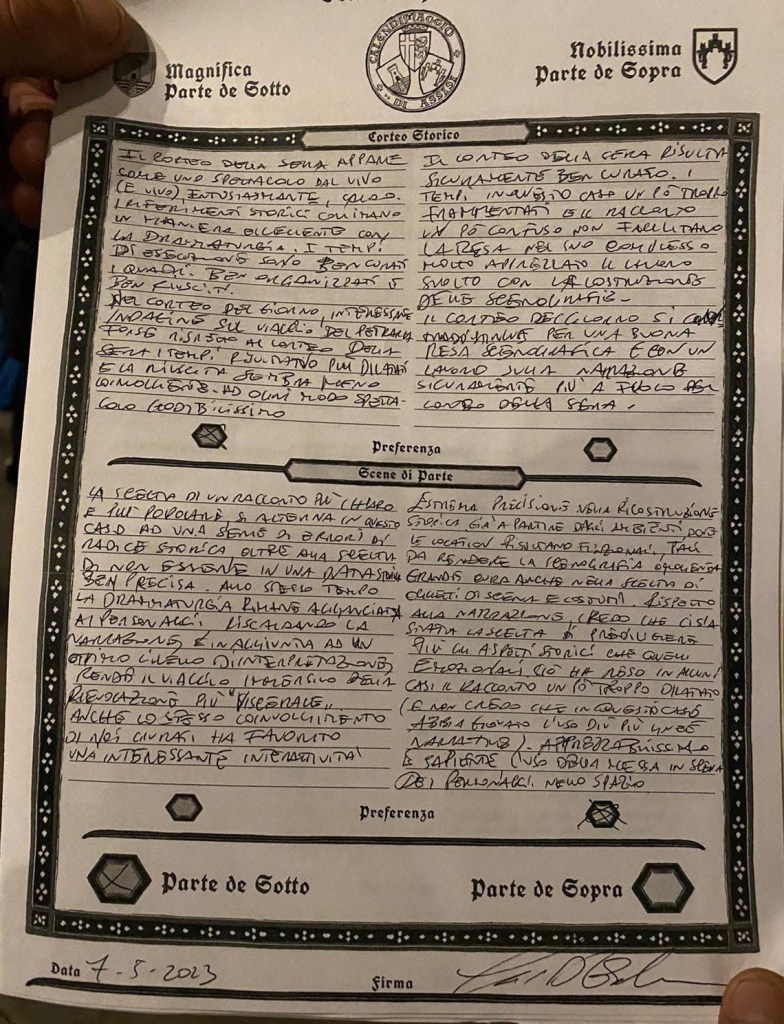 Magnifica
Parte de Sotto
CALENDIMAGGIO
DI ASSISI
Nobilissima
Parte de Sopra
Corteo Storico
IL CORTEO DELLA SERA APPARE
COME UNO SPETTACOLO DAL VIVO
(E VIVO), ENTUSIASMANTE, CALDO.
I RIFERIMENTI STORICI COMBINANO
IN MANIERA ECCELLENTE CON
LA DRAMMATURGIA. I TEMPI
DI ESECUZIONE SONO BEN CURATI
I QUADRI. BEN ORGANIZZATI E
BEN RIUSCITI.
NEL CORTEO DEL GIORNO, INTERESSANTE
INDAGINE SUL VIAGGIO DEL PETRARCA
FORSE RISPETTO AL CORTEO DELLA
SERA I TEMPI RISULTANO PIÙ DILATATI
E LA RIUSCITA SEMBRA MENO
COINVOLGENTE. AD OGNI MODO SPETTA-
COLO GODIBILISSIMO
IL CORTEO DELLA SERA RISULTA
SICURAMENTE BEN CURATO. I
TEMPI IN QUESTO CASO UN PÒ TROPPO
FRAMMENTATI E IL RACCONTO
UN PÒ CONFUSO NON FACILITANO
LA RESA NEL SUO COMPLESSO
MOLTO APPREZZATO IL LAVORO
SVOLTO CON LA COSTRUZIONE
DELLE SCENOGRAFIE-
IL CORTEO DEL GIORNO SI
PER UNA BUONA
RESA SCENOGRAFICA E CON UN
LAVORO SULLA NARRAZIONE
SICURAMENTE PIÙ A FUOCO DEL
CORTEO DELLA SERA.
Preferenza
Scene di Parte
LA SCELTA DI UN RACCONTO PIÙ CHIARO
E PIÙ POPOLARE, SI ALTERNA IN QUESTO
CASO AD UNA SERIE DI ERRORI DI
RADICE STORICA OLTRE ALLA SCELTA
DI NON ESSERE IN UNA DATA STORICA
BEN PRECISA. ALLO STESSO TEMPO
LA DRAMMATURGIA RIMANE AGGANCIATA
AI PERSONAGGI, RISCALDANDO LA
NARRAZIONE, E IN AGGIUNTA AD UN
OTTIMO LIVELLO D'INTERPRETAZIONE,
RENDE IL VIAGGIO IMMERSIVO DELLA
RIEVOCAZIONE PIÙ "VISCERALE".
ANCHE LO SPESSO COINVOLGIMENTO
DI NOI GIURATI HA FAVORITO
UNA INTERESSANTE INTERATTIVITÀ
ESTREMA PRECISIONE NELLA RICOSTRUZIONE
STORICA GIÀ A PARTIRE DAGLI AMBIENTI DOVE
LE LOCATION RISULTANO FUNZIONALI, TALI
DA RENDERE LA SCENOGRAFIA ELOQUENTE
GRANDE CURA ANCHE NELLA SCELTA DI
OGGETTI DI SCENA E COSTUMI. RISPETTO
ALLA NARRAZIONE, CREDO CHE CI SIA
STATA LA SCELTA DI PREDILIGERE
PIÙ GLI ASPETTI STORICI CHE QUELLI
EMOZIONALI CIÒ HA RESO IN ALCUNI
CASI IL RACCONTO UN PÒ TROPPO DILATATO
(E NON CREDO CHE IN QUESTO CASO
ABBIA GIOVATO L'USO DI PIÙ LINEE
NARRATIVE). APPREZZABILISSIMO
E SAPIENTE L'USO DELLA MESSA IN SCENA
DEI PERSONAGGI NELLO SPAZIO
Preferenza
Parte de Sotto
Parte de Sopra
Data 7-5-2023
Firma